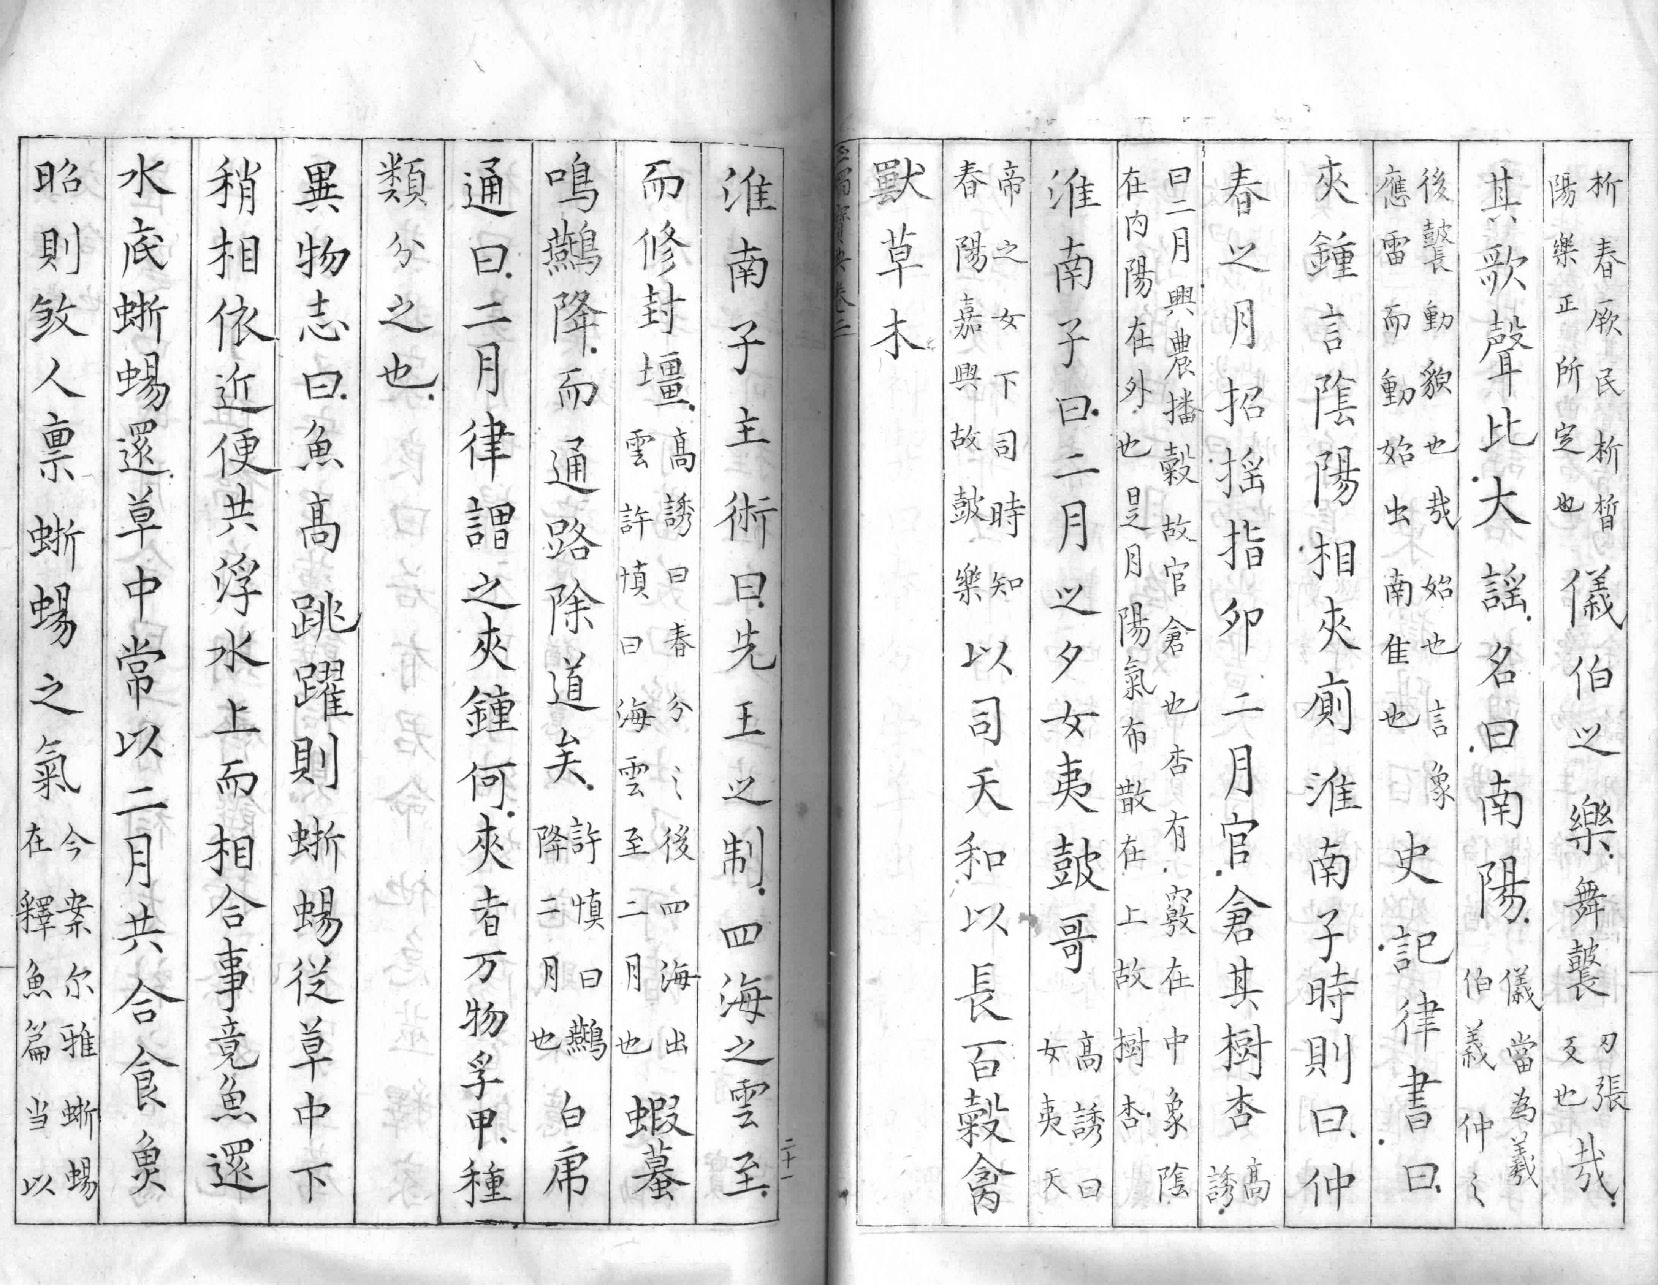 析春厥民析晳
陽樂正所定也
儀伯之樂舞鼚
刃張
反也
哉
其歌聲比大謡名曰南陽
儀當為羲
伯義仲之
後鼚動貌也哉始也言象
應雷而動始出南隹也
史記律書曰
夾鍾言陰陽相夾廁淮南子時則曰仲
春之月招揺指卯二月官倉其樹杏
高
誘
曰二月興農播穀故官倉也杏有竅在中象陰
在内陽在外也是月陽氣布散在上故樹杏
淮南子曰二月之夕女夷鼓哥
高誘曰
女夷天
帝之女下司時知
春陽嘉興故鼓樂
以司天和以長百穀禽
獸草木
淮南子主術曰先王之制四海之雲至
而修封壃
高誘曰春分之後四海出
雲許慎曰海雲至二月也
蝦蟇
鳴鷰降而通路除道矣
許慎曰鷰
降二月也
白虎
通曰二月律謂之夾鍾何夾者万物孚甲種
類分之也
異物志曰魚高跳躍則蜥蜴從草中下
稍相依近便共浮水上而相合事竟魚還
水底蜥蜴還草中常以二月共合食魚
昭則煞人禀蜥蜴之氣
今案尔雅蜥蜴
在釋魚篇当以
玉燭寶典卷二
二十一